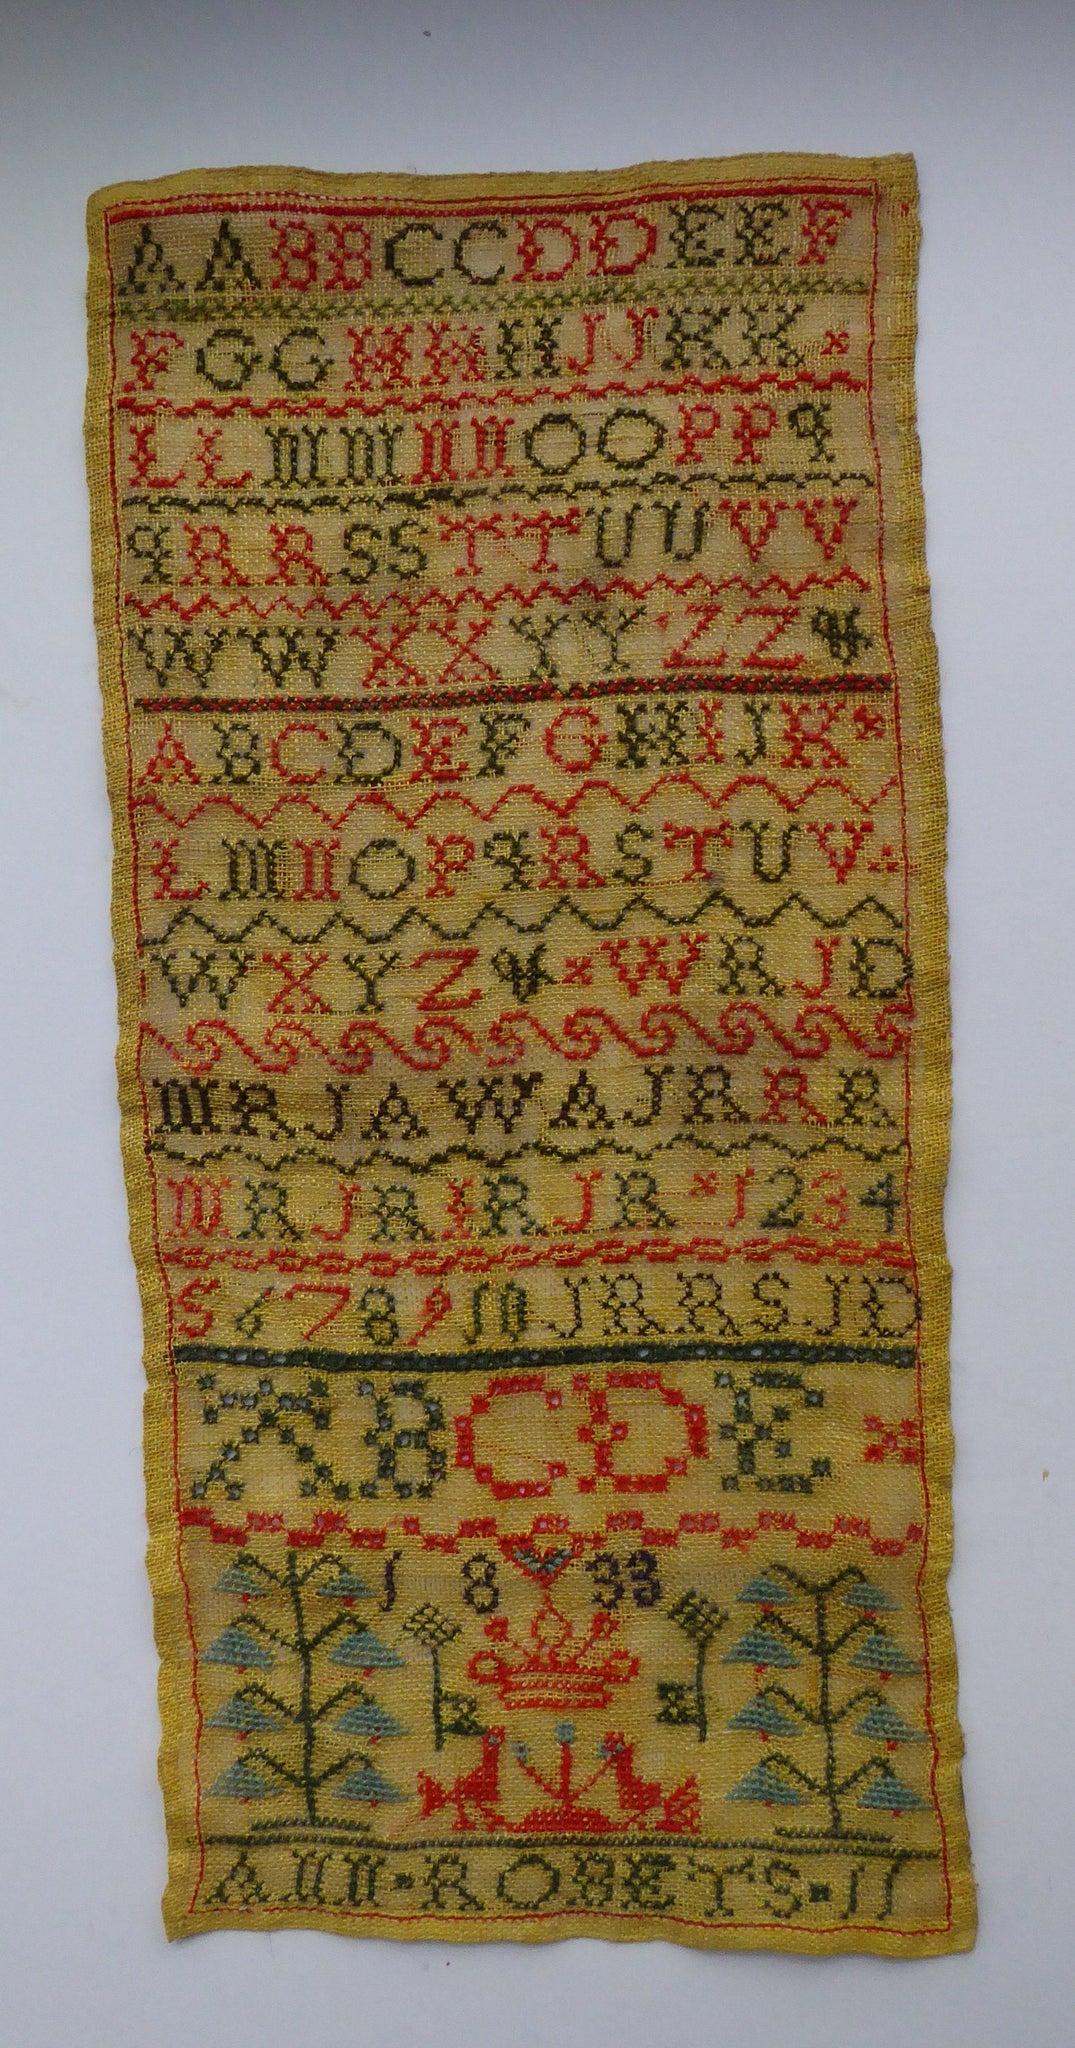 A A B B C C D D E E F
F G G H H H J J K K
L L M M N N O O P P q
q R R S S T T U U V V
W W X X Y Y Z Z &
A B C D E F G H I J K
L M N O P q R S T U V
W X Y Z & W R J D
M R J A W A J R R R
M R J R I R J R 1 2 3 4
5 6 7 8 9 10 J R R S J D
A B C D E
1 8 33
ANN · ROBETS · 11